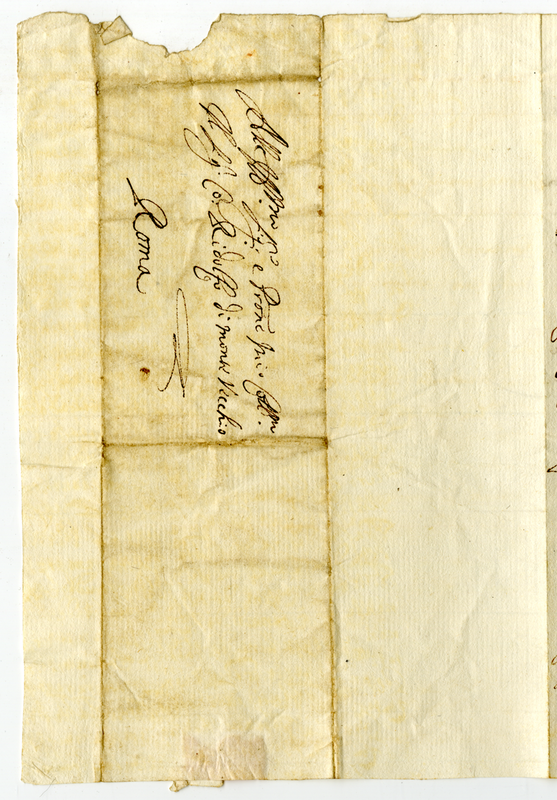 All Ill.mo Sig.r e Prone mio Coll.mo
Il Sig.r Co. Ridolfo di monte Vecchio
Roma